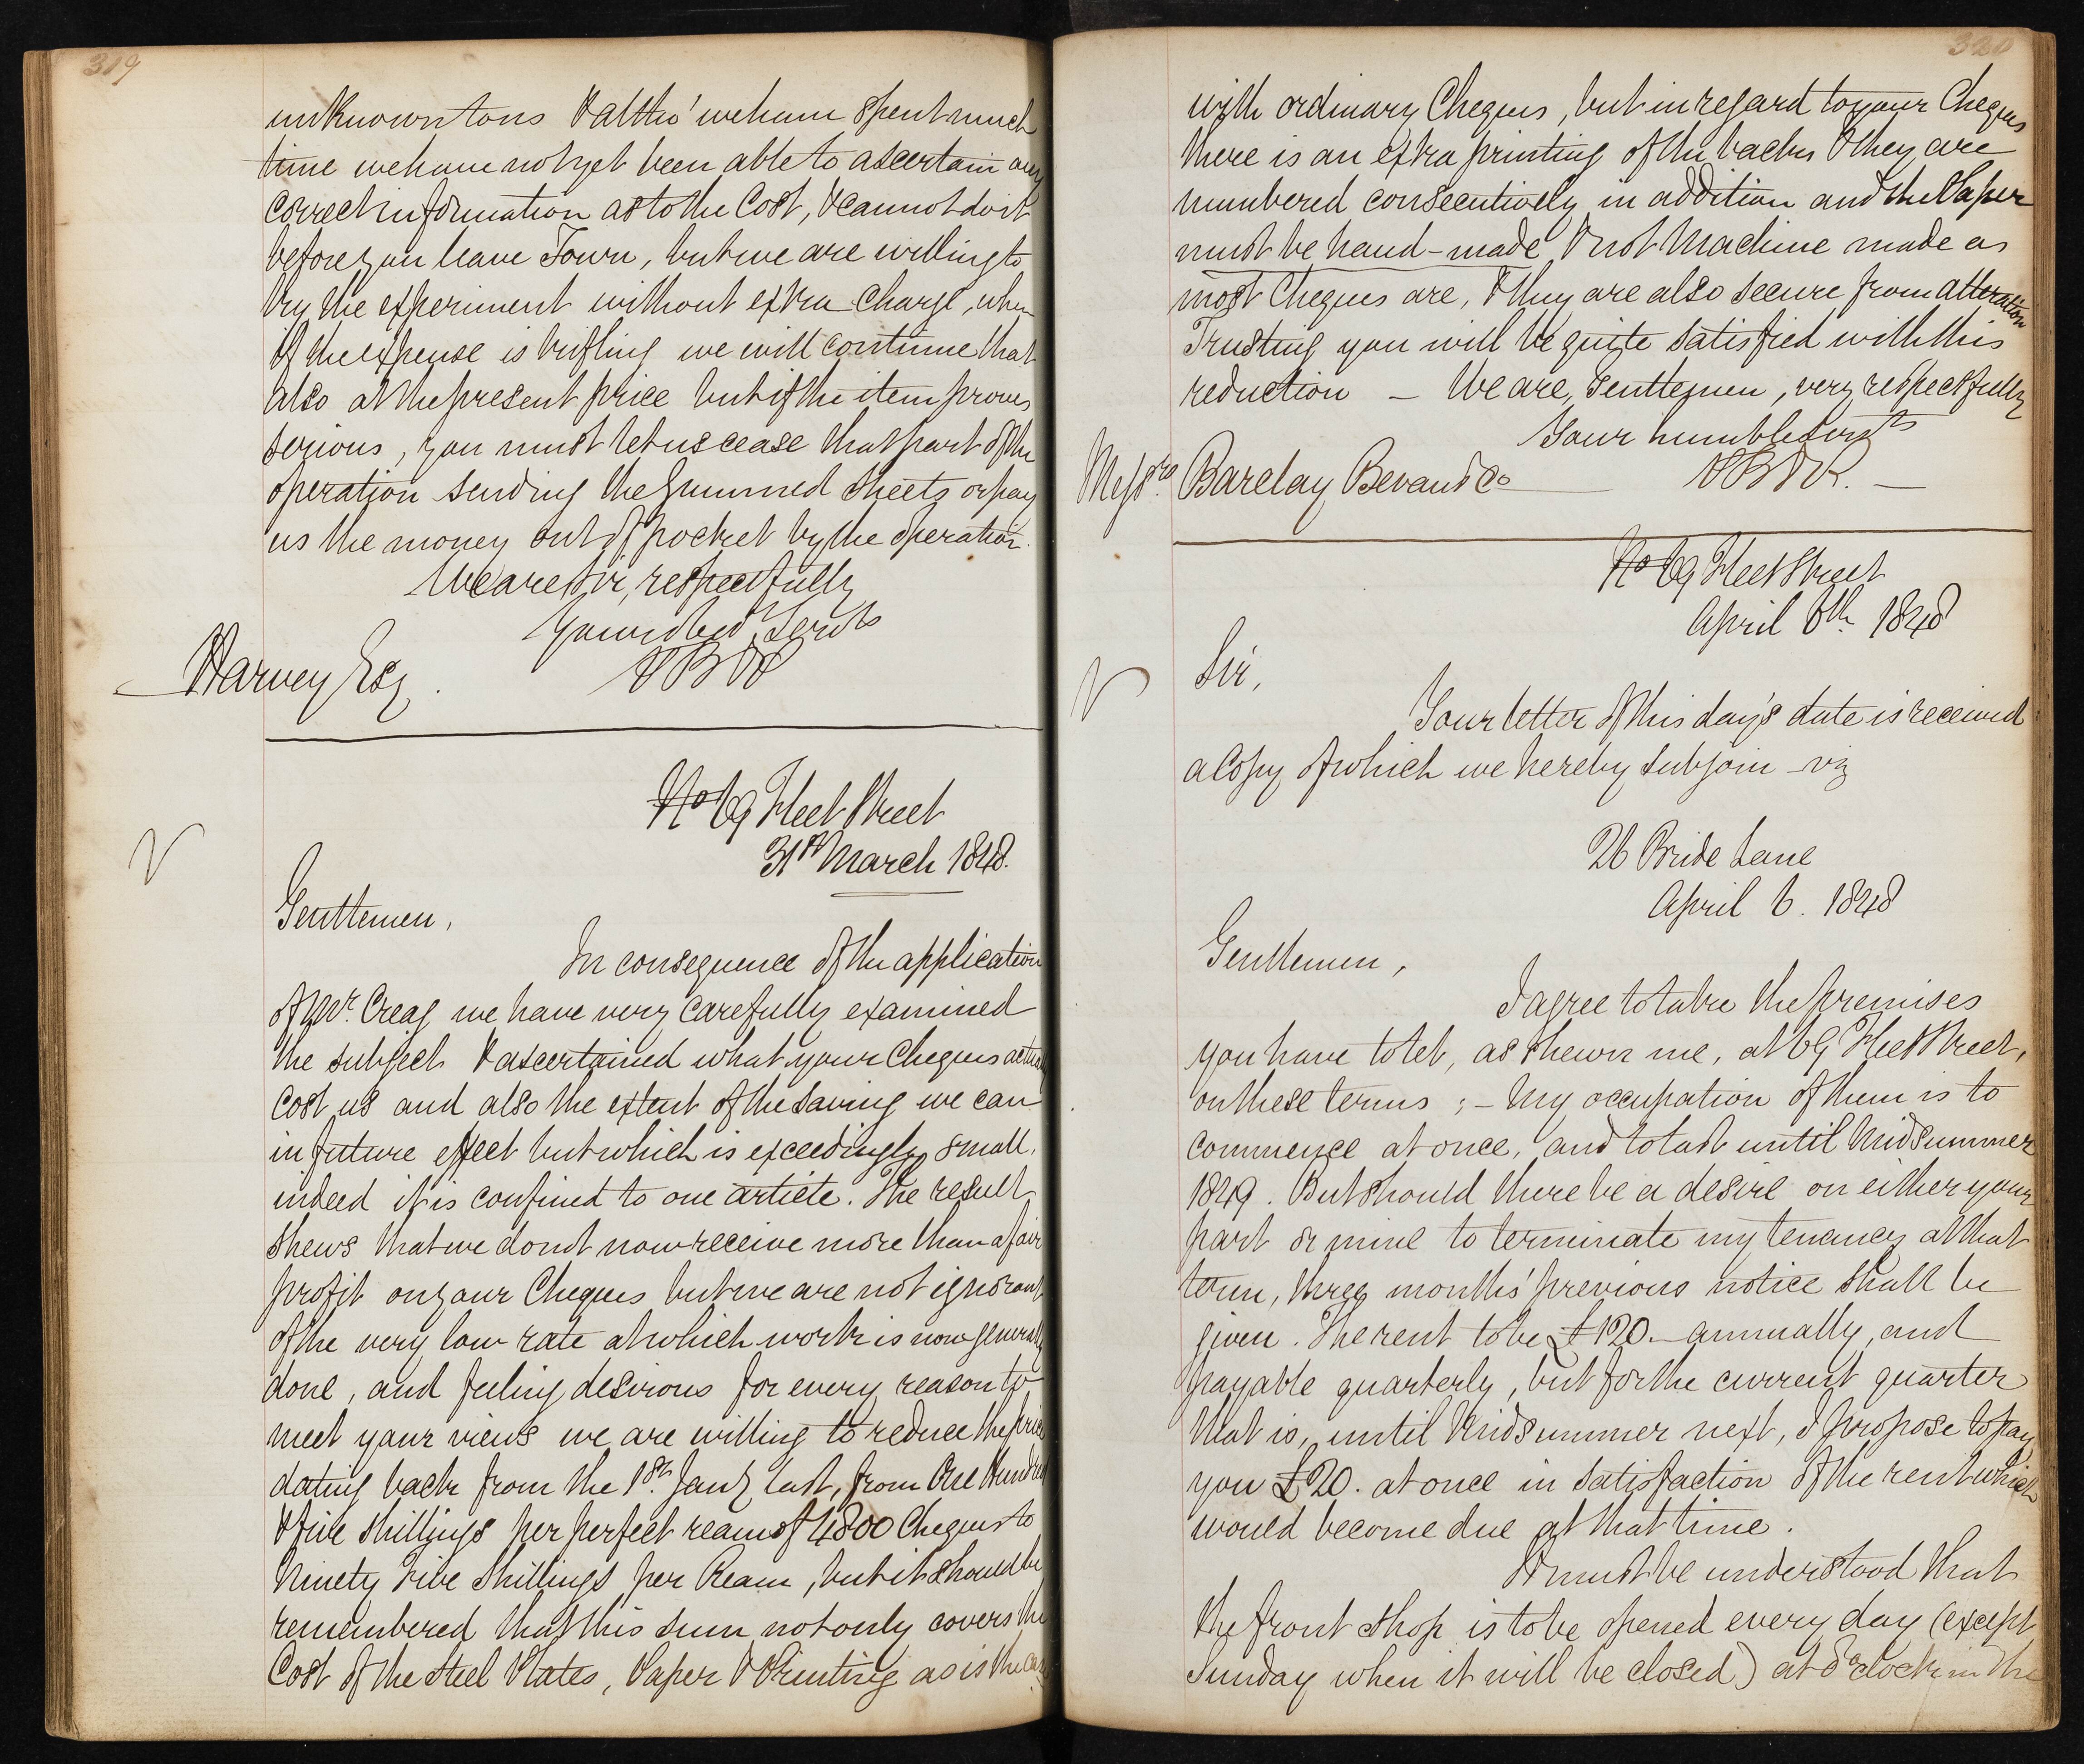 319
unknown to us & altho' we have spent much
time we have not yet been able to ascertain any
correct information as to the Cost, & cannot do it
before you leave Town, but we are willing to
try the experiment without extra charge, when
if the expense is trifling we will continue that
also at the present price but if the item proves
serious, you must let us cease that part of the
operation sending the Gummed Sheets or pay
us the money out of pocket by the operation.
We are Sir, respectfully
Your obed. Servts
PB&P
Harvey Esq.
No 69 Fleet Street
31st March 1848.
Gentlemen,
In consequence of the application
of Mr. Creag we have very carefully examined
the subject & ascertained what your Cheques actual
cost us and also the extent of the saving we can
in future effect but which is exceedingly small,
indeed it is confined to one article. The result
shews that we do not now receive more than a fair
profit on your Cheques but we are not ignorant
of the very low rate at which work is now generally
done, and feeling desirous for every reason to
meet your views we are willing to reduce the price
dating back from the 1st. Jany last, from One Hundred
& five Shillings per perfect ream of 4800 Cheques to
Ninety Five Shillings per Ream, but it should be
remembered that this sum not only covers the
Cost of the Steel Plates, Paper & Printing as is the case
320
with ordinary Cheques, but in regard to your Cheques
there is an extra printing of the backs & they are
numbered consecutively in addition and the Paper
must be hand-made & not Machine made as
most Cheques are, & they are also secure from alteration
Trusting you will be quite satisfied with this
reduction — We are, Gentlemen, very respectfully
Your humble Servts
PB&P. —
Messrs Barclay Bevan & Co
No 69 Fleet Street
April 6th 1848
Sir,
Your letter of this day's date is received
a Copy of which we hereby subjoin — viz
26 Bride Lane
April 6. 1848
Gentlemen,
I agree to take the premises
you have to let, as shewn me, at 69 Fleet Street,
on these terms ; — My occupation of them is to
commence at once, and to last until Midsummer
1849. But should there be a desire on either your
part or mine to terminate my tenancy at that
term, three months' previous notice shall be
given. The rent to be £120. — annually, and
payable quarterly, but for the current quarter
that is, until Midsummer next, I propose to pay
you £20. at once in satisfaction of the rent which
would become due at that time.
It must be understood that
the front shop is to be opened every day (except
Sunday when it will be closed) at 8 o'clock in the